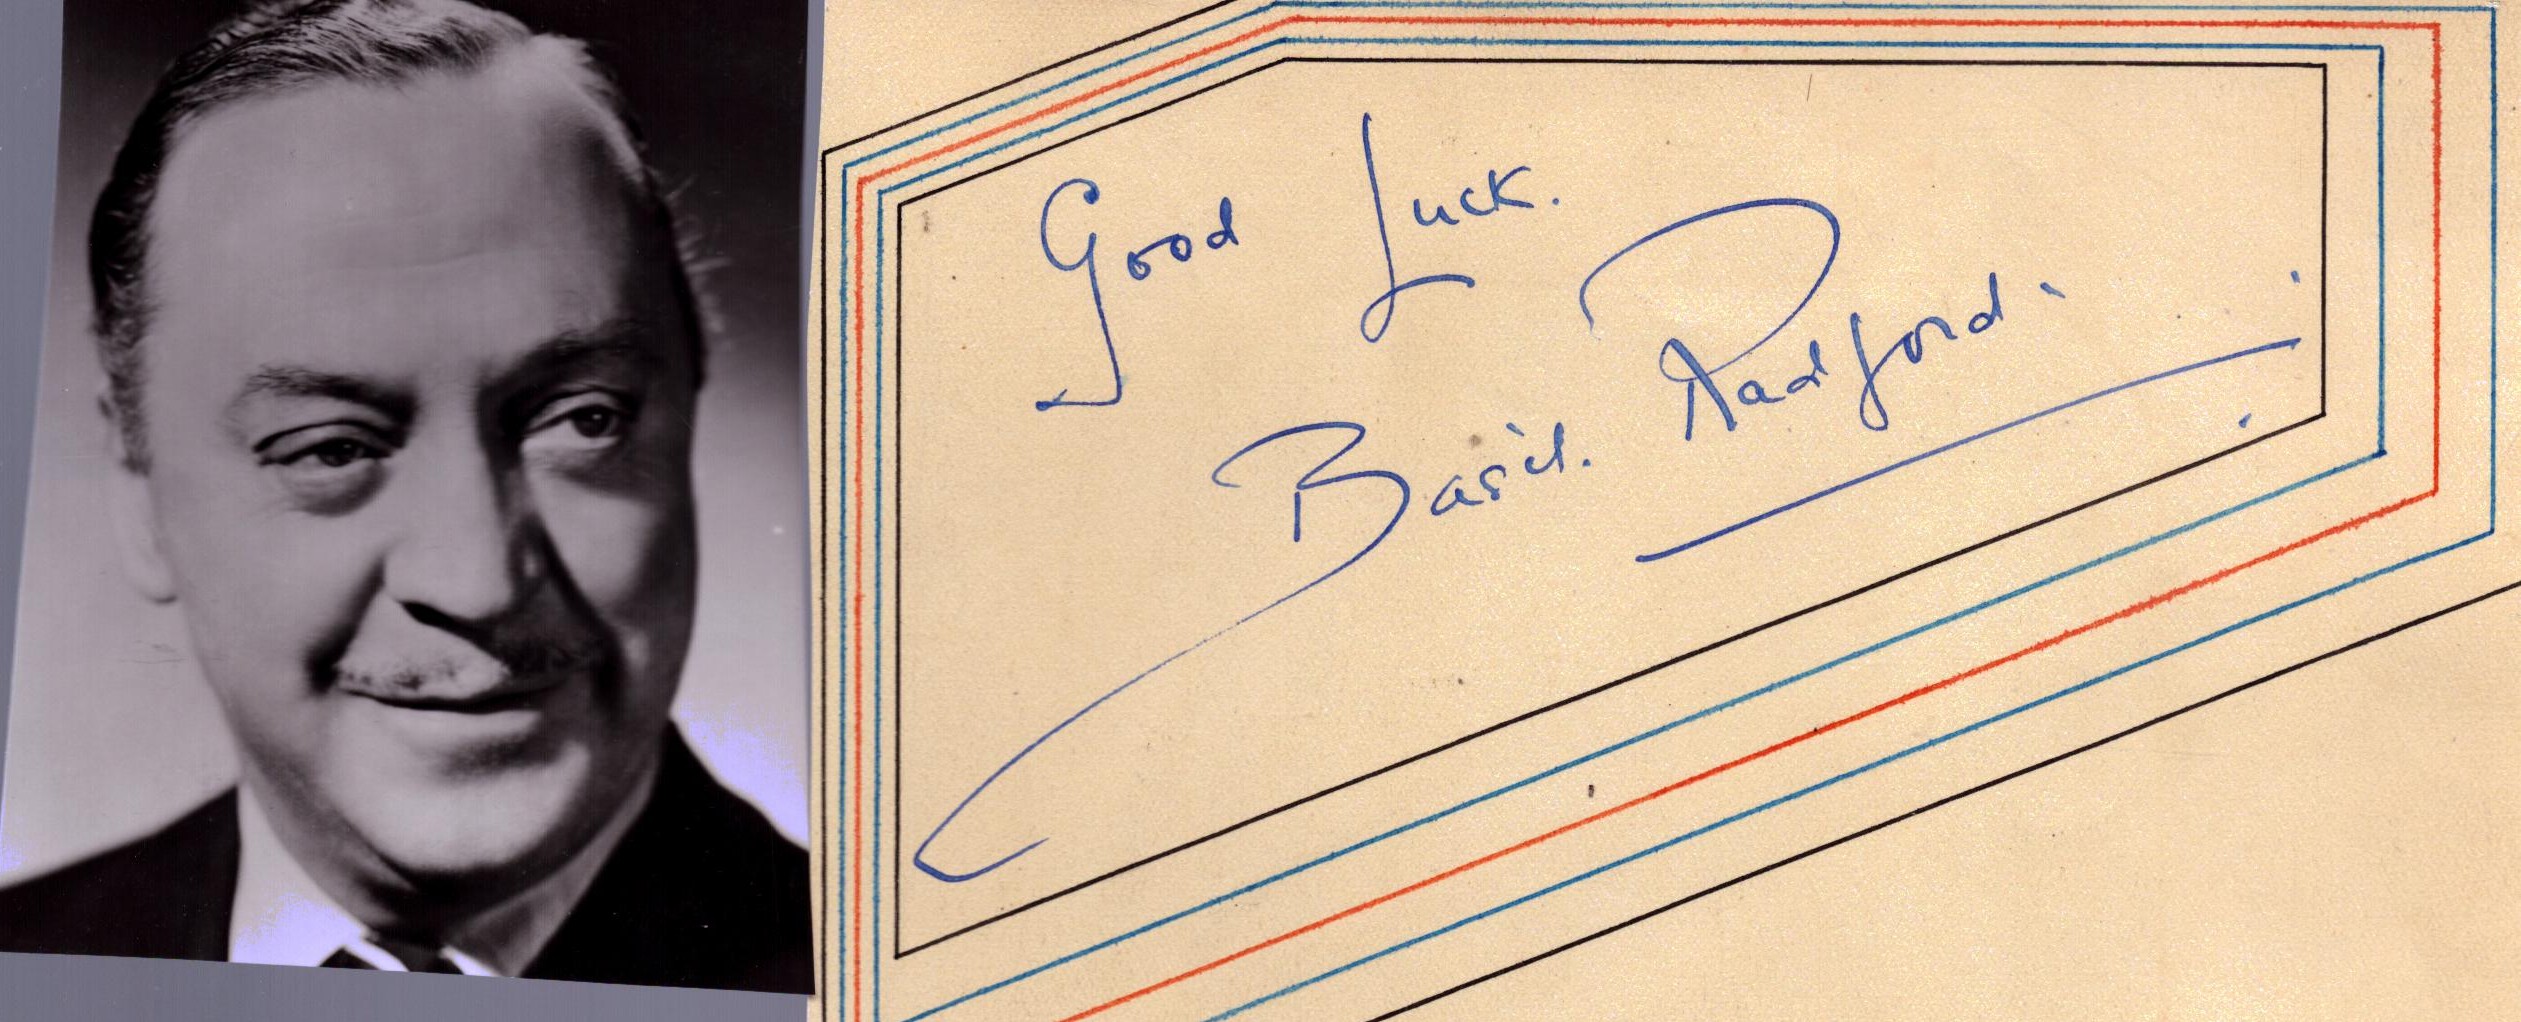 Good Luck.
Basil. Radford.